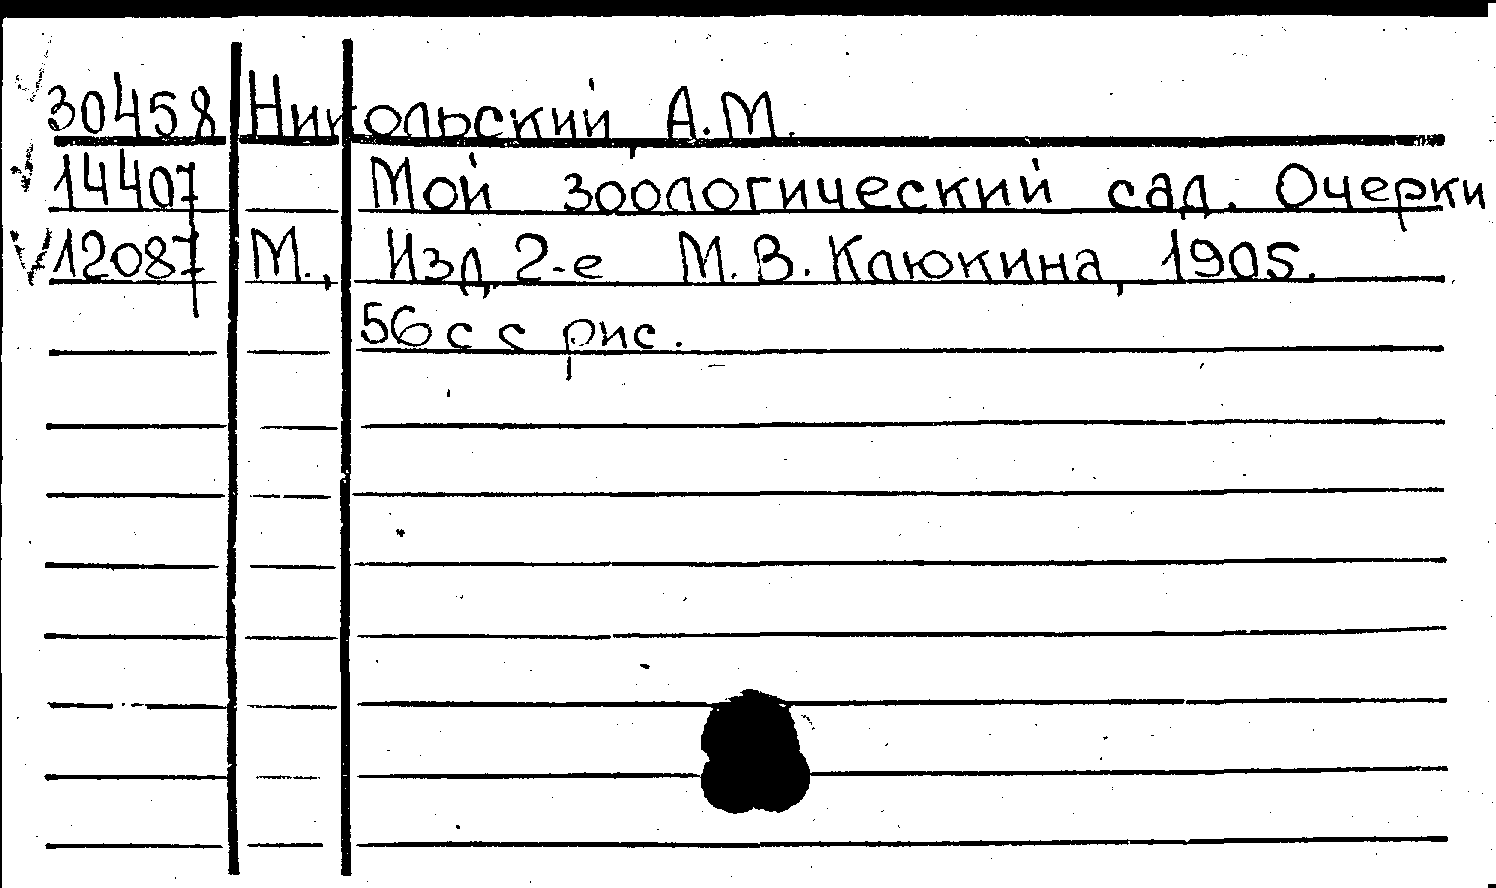 30458 Никольский А.М.
14407 Мой зоологический сад. Очерки
12087 М., Изд. 2-е М.В. Клюкина, 1905.
56 с с рис.